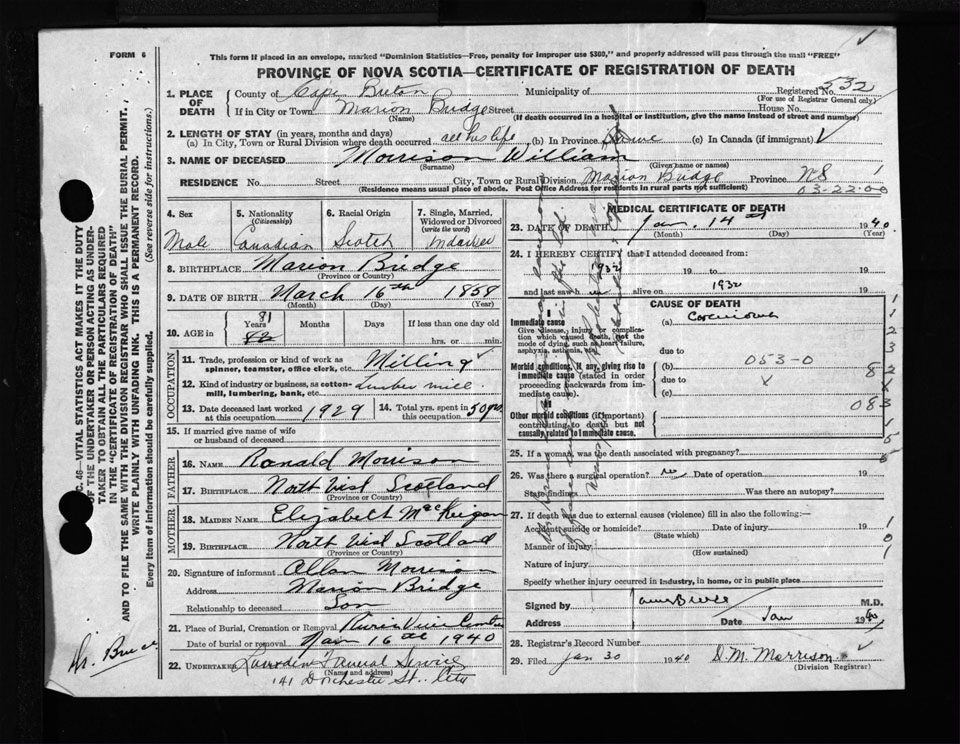 FORM 6
This form if placed in an envelope, marked "Dominion Statistics—Free, penalty for improper use $300," and properly addressed will pass through the mail "FREE"
PROVINCE OF NOVA SCOTIA—CERTIFICATE OF REGISTRATION OF DEATH
1. PLACE OF DEATH County of Cape Breton Municipality of Registered No. 532
(For use of Registrar General only)
If in City or Town Marion Bridge Street House No.
(Name) (If death occurred in a hospital or institution, give the name instead of street and number)
2. LENGTH OF STAY (in years, months and days)
(a) In City, Town or Rural Division where death occurred all his life (b) In Province (c) In Canada (if immigrant)
3. NAME OF DECEASED Morrison William
(Surname) (Given name or names)
RESIDENCE No. Street City, Town or Rural Division Marion Bridge Province NS 1
(Residence means usual place of abode. Post Office Address for residents in rural parts not sufficient) 03-22-00
4. Sex 5. Nationality (Citizenship) 6. Racial Origin 7. Single, Married, Widowed or Divorced (write the word)
Male Canadian Scotch
8. BIRTHPLACE Marion Bridge
(Province or Country)
9. DATE OF BIRTH March 16th 1858
(Month) (Day) (Year)
10. AGE in 81 Years Months Days If less than one day old
82 hrs. or min.
OCCUPATION
11. Trade, profession or kind of work as spinner, teamster, office clerk, etc. Milling
12. Kind of industry or business, as cotton-mill, lumbering, bank, etc. Lumber mill
13. Date deceased last worked at this occupation 1929 14. Total yrs. spent in this occupation 50 yrs.
15. If married give name of wife or husband of deceased
FATHER
16. NAME Ronald Morrison
17. BIRTHPLACE North West Scotland
(Province or Country)
MOTHER
18. MAIDEN NAME Elizabeth MacKeigan
19. BIRTHPLACE North West Scotland
(Province or Country)
20. Signature of informant Allan Morrison
Address Marion Bridge
Relationship to deceased Son
21. Place of Burial, Cremation or Removal
Date of burial or removal 16th 1940
22. UNDERTAKER Funeral Service
(Name and address)
141 Dorchester St. City
MEDICAL CERTIFICATE OF DEATH
23. DATE OF DEATH Jan. 14th 1940
(Month) (Day) (Year)
24. I HEREBY CERTIFY that I attended deceased from:
1932 19 to 19
and last saw h alive on 1932 19
CAUSE OF DEATH
I
Immediate cause (a)
Give disease, injury or complication which caused death, not the mode of dying, such as heart failure, asphyxia, asthenia, etc.
due to
Morbid conditions, if any, giving rise to immediate cause (stated in order proceeding backwards from immediate). (b) 053-0
due to x
(c)
II
Other morbid conditions (if important) contributing to death but not causally related to immediate cause.
083
25. If a woman, was the death associated with pregnancy?
26. Was there a surgical operation? Date of operation 19
State findings Was there an autopsy?
27. If death was due to external causes (violence) fill in also the following:—
Accident, suicide or homicide? Date of injury 19
(State which)
Manner of injury
(How sustained)
Nature of injury
Specify whether injury occurred in industry, in home, or in public place
Signed by M.D.
Address Date Jan 1940
28. Registrar's Record Number
29. Filed Jan 30 1940 D.M. Morrison
(Division Registrar)
C. 46—VITAL STATISTICS ACT MAKES IT THE DUTY
OF THE UNDERTAKER OR PERSON ACTING AS UNDER-
TAKER TO OBTAIN ALL THE PARTICULARS REQUIRED
IN THE "CERTIFICATE OF REGISTRATION OF DEATH"
AND TO FILE THE SAME WITH THE DIVISION REGISTRAR WHO SHALL ISSUE THE BURIAL PERMIT.
WRITE PLAINLY WITH UNFADING INK. THIS IS A PERMANENT RECORD.
Every item of information should be carefully supplied. (See reverse side for instructions.)
Dr. Bruce